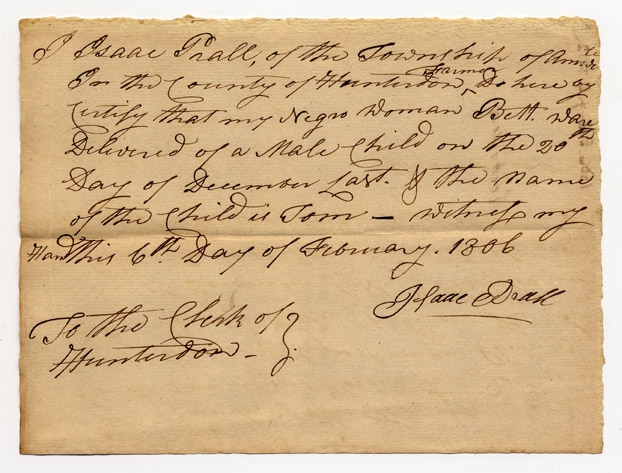 I Isaac Prall, of the Township of Amwell
In the County of Hunterdon, Farmer Do here by
Certify that my Negro Woman Bett. Ware
Delivered of a Male Child on the 20th
Day of December Last. & the Name
of the Child is Tom — Witness my
Hand This 6th Day of February. 1806
Isaac Prall
To the Clerk of
Hunterdon —